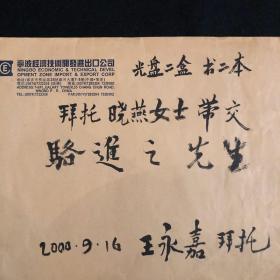 寧波經濟技術開發進出口公司
NINGBO ECONOMIC & TECHNICAL DEVEL
OPMENT ZONE IMPORT & EXPORT CORP
光盘二盒 书二本
拜托 晓燕女士 带交
駱進之 先生
2000.9.16 王永嘉 拜托